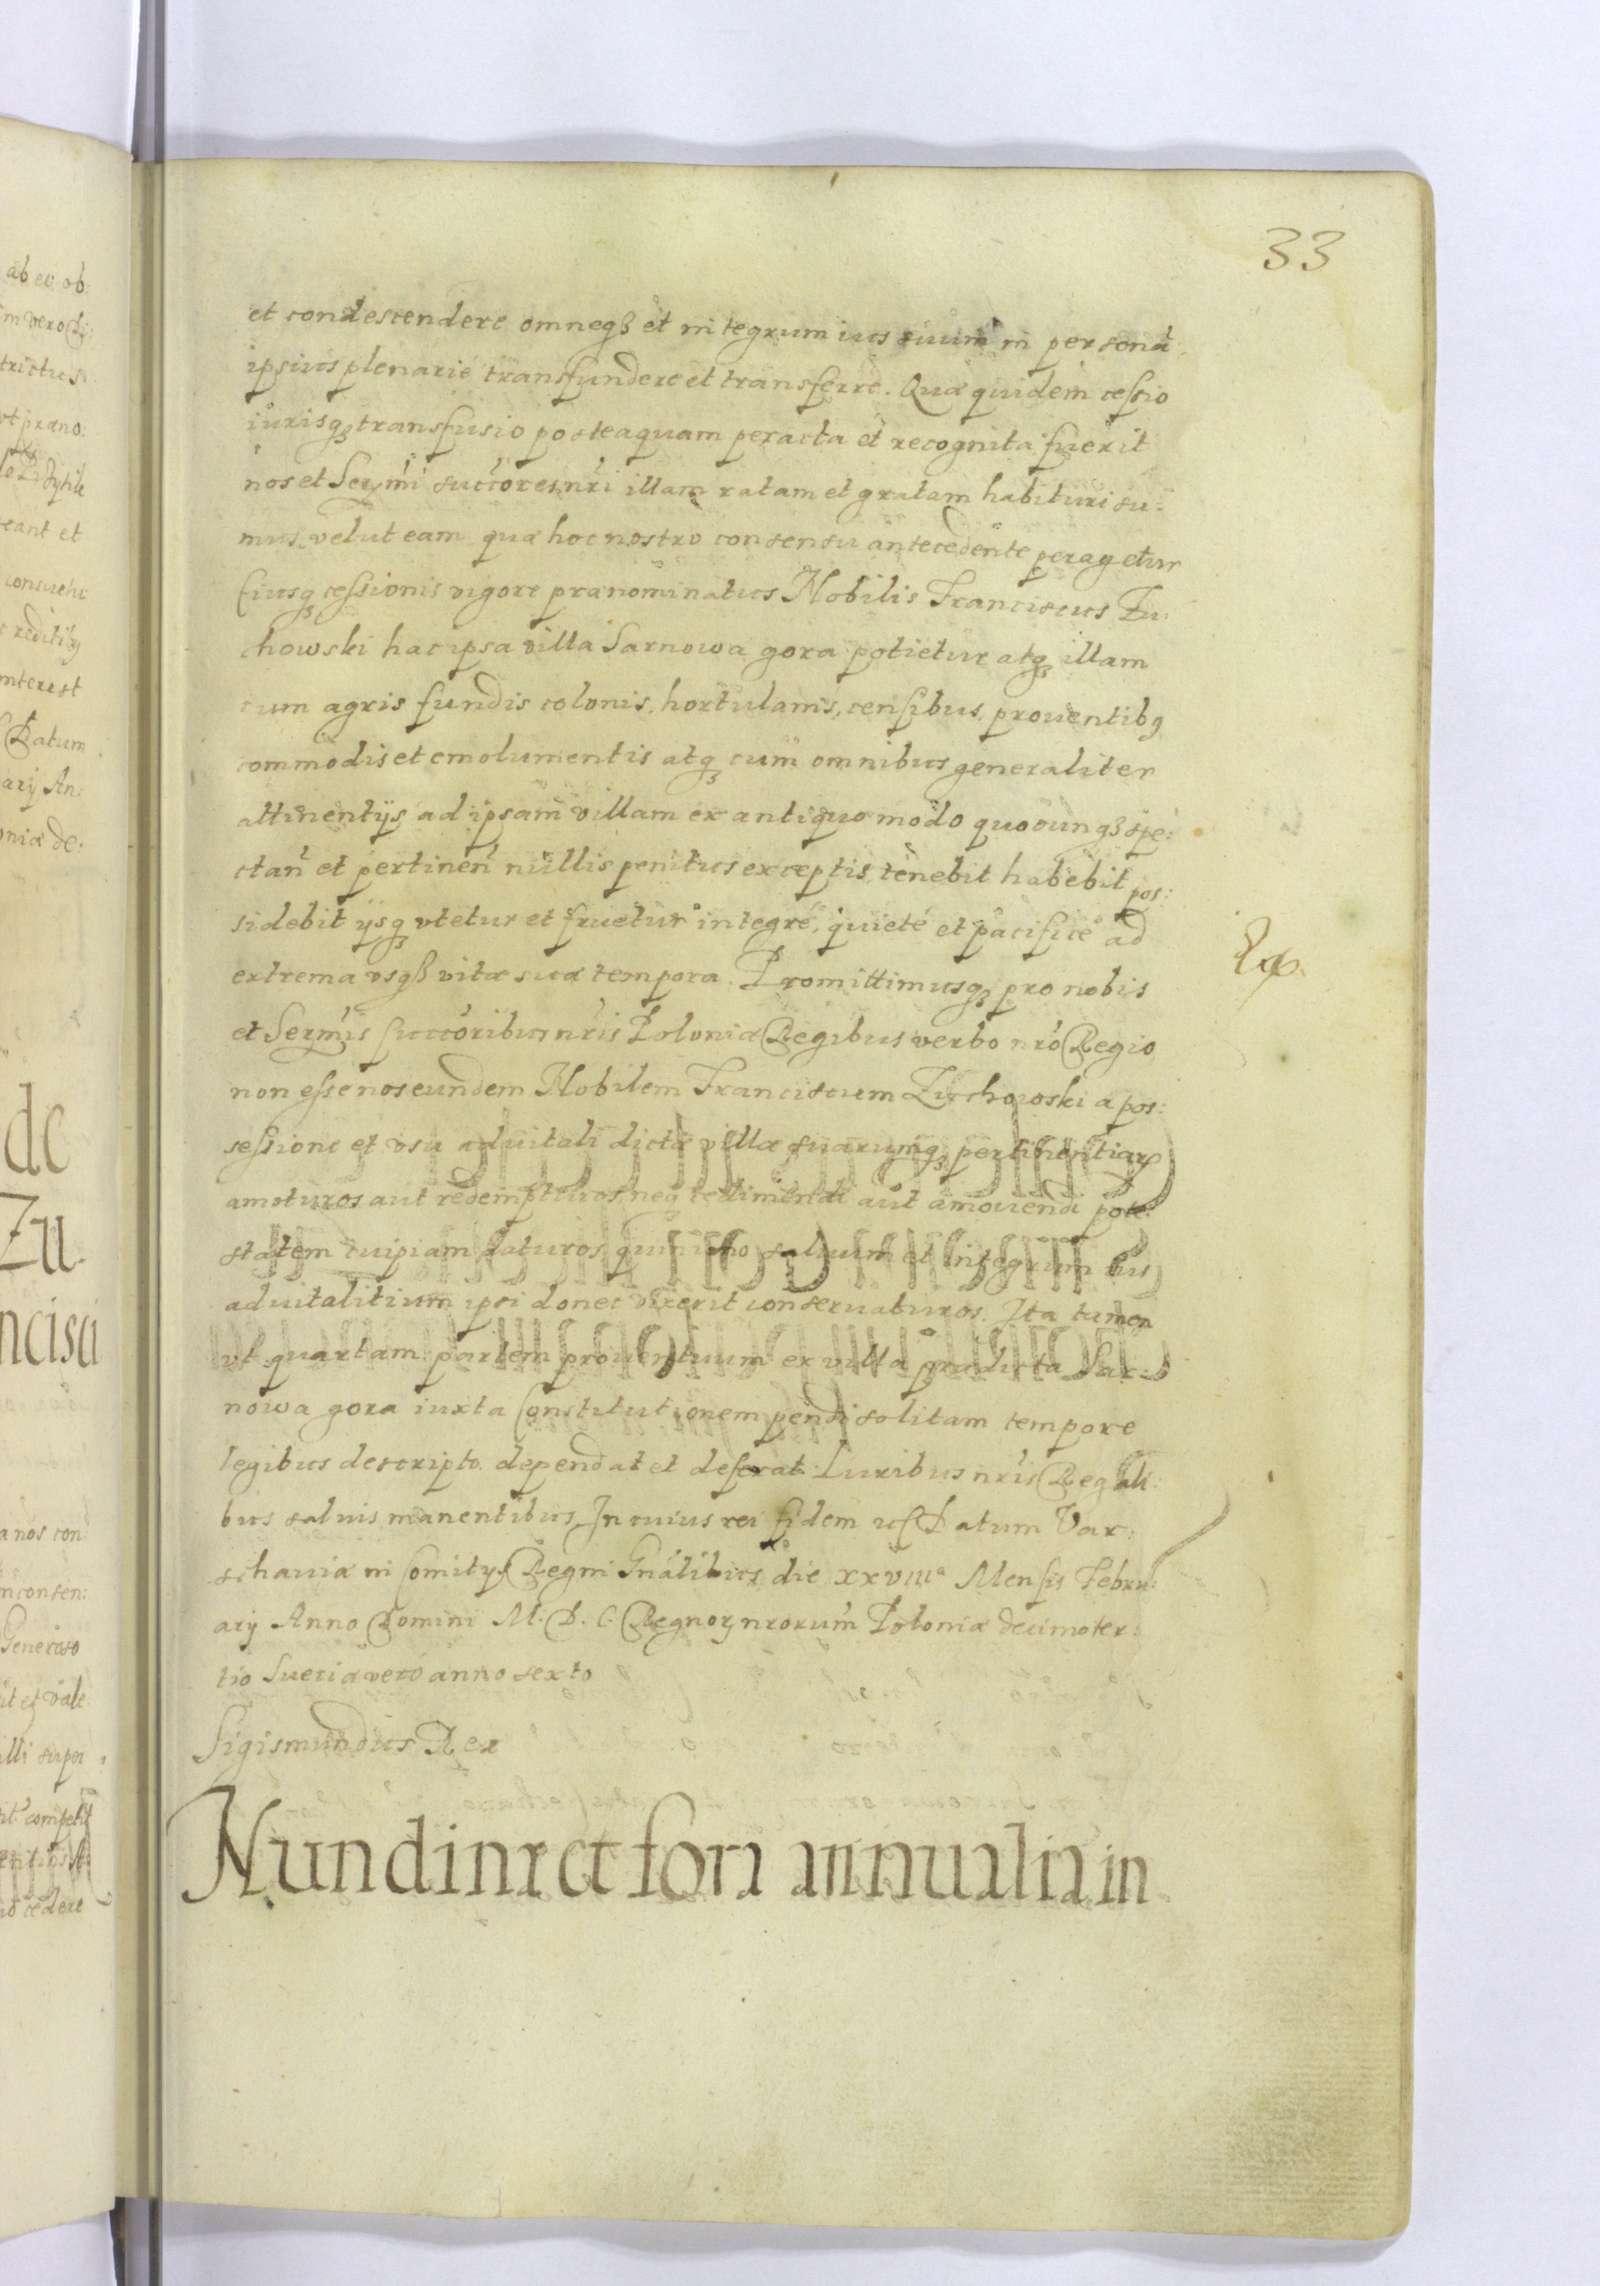 33
et condescendere omneqȝ et integrum ius suum in personā
ipsius plenarie transfundere et transferre. Quæ quidem cessio
iurisqȝ transfusio posteaquam peracta et recognita fuerit
nos et Sermi succores nri illam ratam et gratam habituri su:
mus, velut eam quæ hoc nostro consensu antecedente peragetur
Eiusqȝ cessionis vigore prænominatus Nobilis Franciscus Zu:
chowski hac ipsa villa Sarnowa gora potietur atqȝ illam
cum agris fundis colonis, hortulanis, censibus, prouentibꝯ
commodis et emolumentis atqȝ cum omnibus generaliter
attinentijs ad ipsam villam ex antiquo modo quocunqȝ spe:
ctan̄ et pertinen̄ nullis penitus exceptis, tenebit habebit pos:
sidebit ijsqȝ vtetur et fruetur integré, quieté et pacificé ad
extrema vsqȝ vitæ suæ tempora. Promittimusqȝ pro nobis
et Sermis succoribus nris Poloniæ Regibus verbo nro Regio
non esse nos eundem Nobilem Franciscum Zuchowski a pos:
sessione et vsu aduitali dictæ villæ suarumqȝ pertinentiarꝝ
amoturos aut redempturos, neqȝ redimendi aut amouendi pote:
statem cuipiam daturos, quinimo saluum et integrum ius
aduitalitium ipsi donec vixerit conseruaturos. Ita tamen
vt quartam partem prouentuum ex villa prædicta Sar:
nowa gora iuxta Constitutionem pendi solitam tempore
legibus descripto dependat et deferat. Iuribus nris Regali:
bus saluis manentibus. In cuius rei fidem Datum Var:
schauiæ in Comitijs Regni Gnalibus die xxviiiᵃ Mensis Febru:
arij Anno Domini M. D. C. Regnorꝝ nrorum Poloniæ decimoter:
tio Sueciæ veró anno sexto
Sigismundus Rex
Nundinæ et fora annualia in